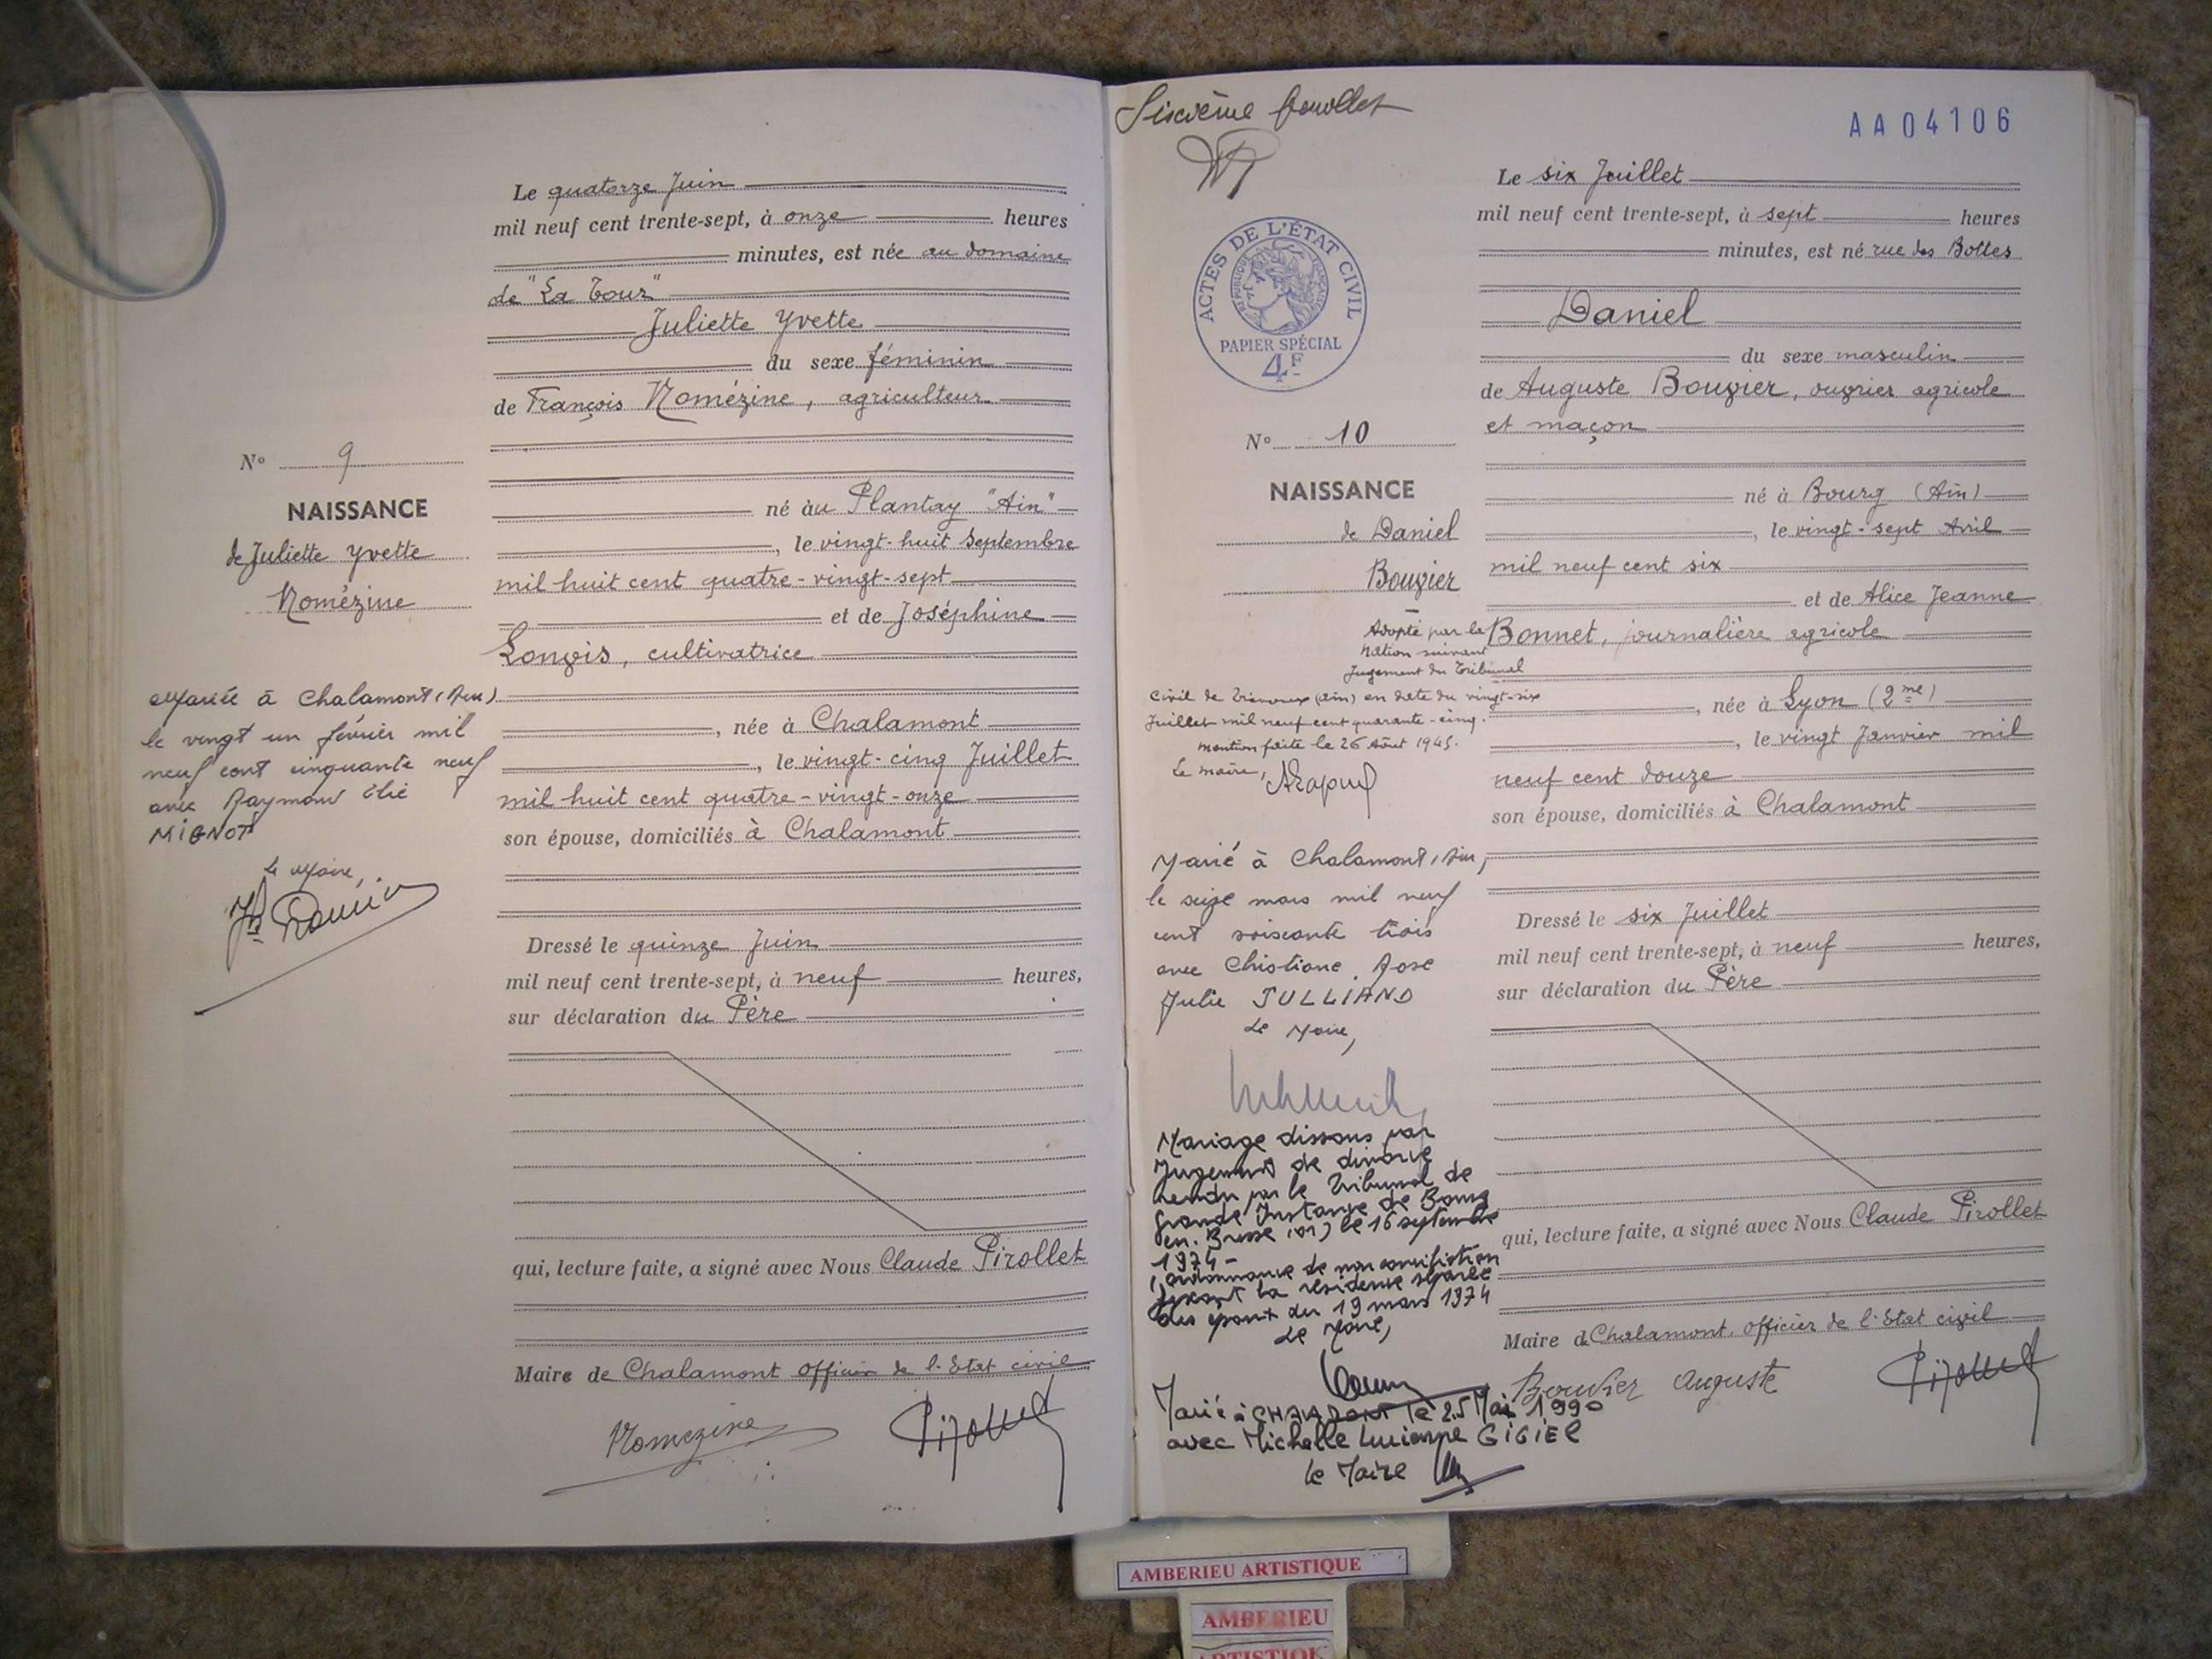 Le quatorze Juin
mil neuf cent trente-sept, à onze heures
minutes, est née au domaine
de "La Tour"
Juliette Yvette
du sexe féminin
de François Nomézine, agriculteur
né au Plantay "Ain"
, le vingt-huit Septembre
mil huit cent quatre-vingt-sept
et de Joséphine
cultivatrice
, née à Chalamont
, le vingt-cinq Juillet
mil huit cent quatre-vingt-onze
son épouse, domiciliés à Chalamont
Dressé le quinze Juin
mil neuf cent trente-sept, à neuf heures,
sur déclaration du Père
qui, lecture faite, a signé avec Nous Claude Pirollet
Maire de Chalamont officier de l'Etat civil
Nomezine
Pirollet
N° 9
NAISSANCE
de Juliette Yvette
Nomézine
Mariée à Chalamont (Ain)
le vingt un février mil
neuf cent cinquante neuf
avec Raymond Elie
MIGNOT
Le Maire,
Sixième feuillet
AA04106
ACTES DE L'ÉTAT CIVIL
RÉPUBLIQUE FRANÇAISE
PAPIER SPÉCIAL
4F
Le six Juillet
mil neuf cent trente-sept, à sept heures
minutes, est né rue des Bottes
Daniel
du sexe masculin
de Auguste Bouvier, ouvrier agricole
et maçon
né à Bourg (Ain)
, le vingt-sept Avril
mil neuf cent six
et de Alice Jeanne
Bonnet, journalière agricole
, née à Lyon (2me)
, le vingt Janvier mil
neuf cent douze
son épouse, domiciliés à Chalamont
Dressé le six Juillet
mil neuf cent trente-sept, à neuf heures,
sur déclaration du Père
qui, lecture faite, a signé avec Nous Claude Pirollet
Maire de Chalamont, officier de l'Etat civil
Bouvier Auguste
Pirollet
N° 10
NAISSANCE
de Daniel
Bouvier
Adopté par la
Nation suivant
Jugement du Tribunal
Civil de Trévoux (Ain) en date du vingt-six
Juillet mil neuf cent quarante-cinq.
Mention faite le 26 Août 1945.
Le maire,
Marié à Chalamont (Ain)
le seize mars mil neuf
cent soixante trois
avec Christiane Rose
Julie JULLIAND
Le Maire,
Mariage dissous par
Jugement de divorce
rendu par le Tribunal de
Grande Instance de Bourg
en Bresse (01) le 16 septembre
1974 -
(ordonnance de non conciliation
fixant la résidence séparée
des époux du 19 mars 1974
Le Maire,
Marié à CHALAMONT le 25 Mai 1990
avec Michelle Lucienne GIGIEL
le Maire
AMBERIEU ARTISTIQUE
AMBERIEU
ARTISTIQUE